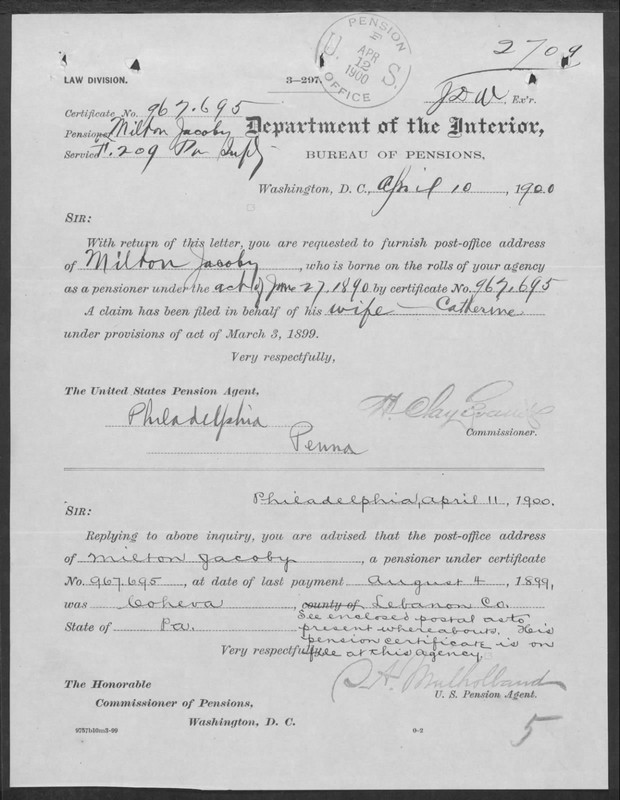 2709
PENSION OFFICE
U. S.
APR
12
1900
LAW DIVISION.
3—297.
J D W, Ex'r.
Certificate No. 967.695
Pensioner Milton Jacoby
Service F. 209 Pa Inf
Department of the Interior,
BUREAU OF PENSIONS,
Washington, D. C., April 10, 1900
SIR:
With return of this letter, you are requested to furnish post-office address
of Milton Jacoby, who is borne on the rolls of your agency
as a pensioner under the act of June 27, 1890 by certificate No. 967,695
A claim has been filed in behalf of his wife — Catherine
under provisions of act of March 3, 1899.
Very respectfully,
The United States Pension Agent,
H. Clay Evans
Philadelphia
Commissioner.
Penna
Philadelphia, April 11, 1900.
SIR:
Replying to above inquiry, you are advised that the post-office address
of Milton Jacoby, a pensioner under certificate
No. 967.695, at date of last payment August 4, 1899,
was Coheva, county of Lebanon Co.
State of Pa. See enclosed postal as to
present whereabouts. His
pension certificate is on
Very respectfully, file at this Agency.
St Mulholland
The Honorable
U. S. Pension Agent.
Commissioner of Pensions,
Washington, D. C.
9757b10m3-99
0-2
5